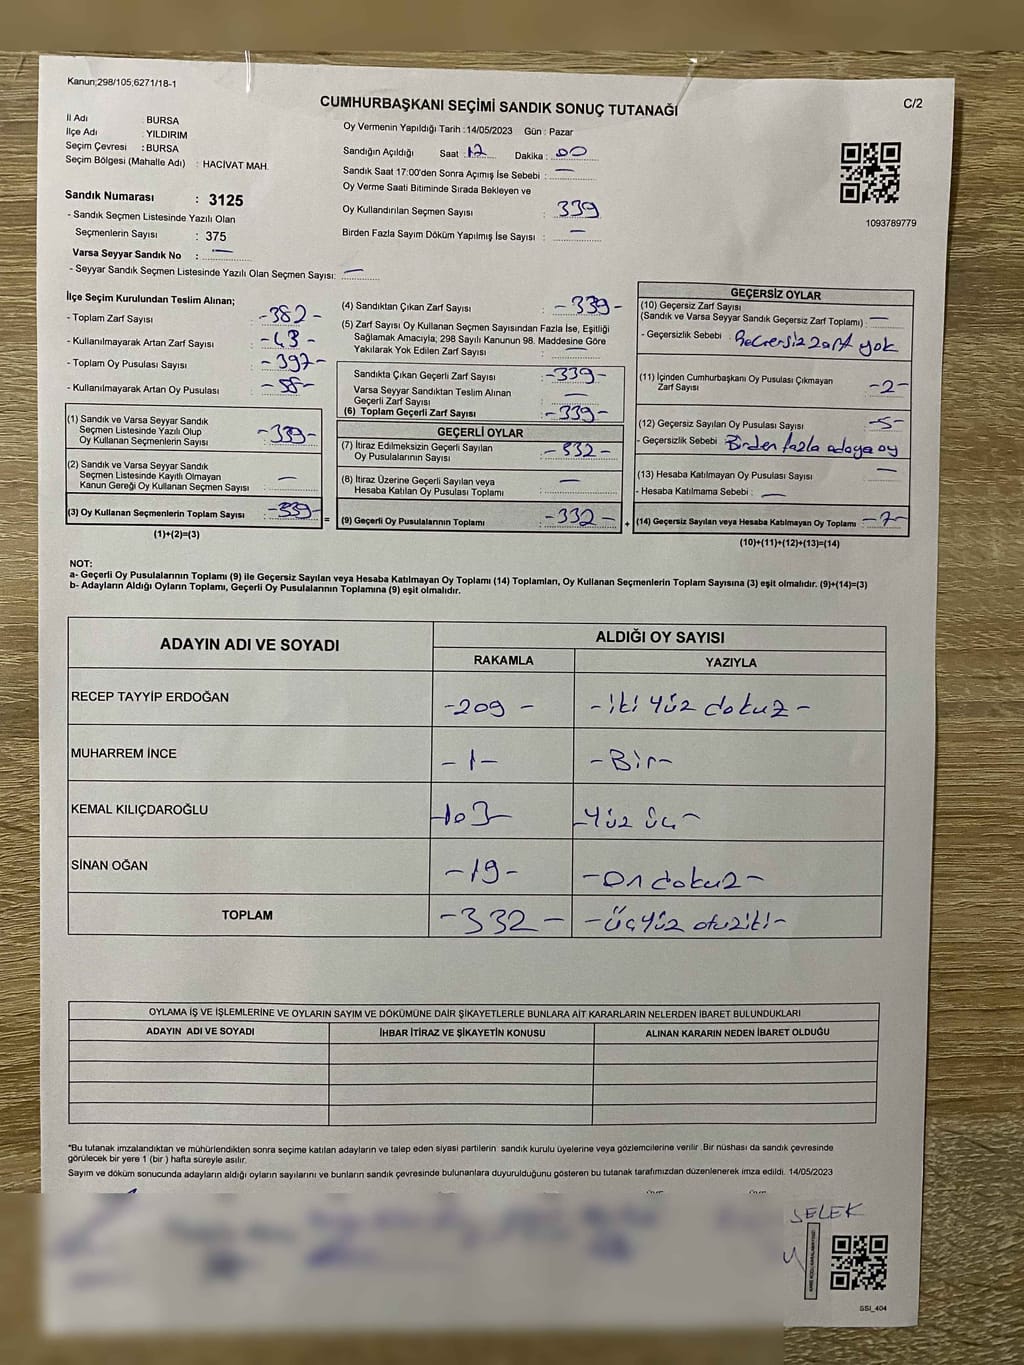 Kanun;298/105,6271/18-1
CUMHURBAŞKANI SEÇİMİ SANDIK SONUÇ TUTANAĞI
C/2
İl Adı : BURSA
İlçe Adı : YILDIRIM
Seçim Çevresi : BURSA
Seçim Bölgesi (Mahalle Adı) : HACİVAT MAH.
Sandık Numarası : 3125
- Sandık Seçmen Listesinde Yazılı Olan
Seçmenlerin Sayısı : 375
Varsa Seyyar Sandık No : —
- Seyyar Sandık Seçmen Listesinde Yazılı Olan Seçmen Sayısı: —
Oy Vermenin Yapıldığı Tarih : 14/05/2023 Gün : Pazar
Sandığın Açıldığı Saat : 12 Dakika : 00
Sandık Saat 17:00'den Sonra Açımış İse Sebebi : —
Oy Verme Saati Bitiminde Sırada Bekleyen ve
Oy Kullandırılan Seçmen Sayısı : 339
Birden Fazla Sayım Döküm Yapılmış İse Sayısı : —
1093789779
İlçe Seçim Kurulundan Teslim Alınan;
- Toplam Zarf Sayısı : -382-
- Kullanılmayarak Artan Zarf Sayısı : -43-
- Toplam Oy Pusulası Sayısı : -397-
- Kullanılmayarak Artan Oy Pusulası : -58-
(1) Sandık ve Varsa Seyyar Sandık
Seçmen Listesinde Yazılı Olup
Oy Kullanan Seçmenlerin Sayısı : -339-
(2) Sandık ve Varsa Seyyar Sandık
Seçmen Listesinde Kayıtlı Olmayan
Kanun Gereği Oy Kullanan Seçmen Sayısı : —
(3) Oy Kullanan Seçmenlerin Toplam Sayısı : -339-
(1)+(2)=(3)
(4) Sandıktan Çıkan Zarf Sayısı : -339-
(5) Zarf Sayısı Oy Kullanan Seçmen Sayısından Fazla İse, Eşitliği
Sağlamak Amacıyla; 298 Sayılı Kanunun 98. Maddesine Göre
Yakılarak Yok Edilen Zarf Sayısı : —
Sandıkta Çıkan Geçerli Zarf Sayısı : -339-
Varsa Seyyar Sandıktan Teslim Alınan
Geçerli Zarf Sayısı : —
(6) Toplam Geçerli Zarf Sayısı : -339-
GEÇERLİ OYLAR
(7) İtiraz Edilmeksizin Geçerli Sayılan
Oy Pusulalarının Sayısı : -332-
(8) İtiraz Üzerine Geçerli Sayılan veya
Hesaba Katılan Oy Pusulası Toplamı : —
= (9) Geçerli Oy Pusulalarının Toplamı : -332-
GEÇERSİZ OYLAR
(10) Geçersiz Zarf Sayısı
(Sandık ve Varsa Seyyar Sandık Geçersiz Zarf Toplamı) : —
- Geçersizlik Sebebi : Geçersiz zarf yok
(11) İçinden Cumhurbaşkanı Oy Pusulası Çıkmayan
Zarf Sayısı : -2-
(12) Geçersiz Sayılan Oy Pusulası Sayısı : -5-
- Geçersizlik Sebebi : Birden fazla adaya oy
(13) Hesaba Katılmayan Oy Pusulası Sayısı : —
- Hesaba Katılmama Sebebi : —
+ (14) Geçersiz Sayılan veya Hesaba Katılmayan Oy Toplamı : -7-
(10)+(11)+(12)+(13)=(14)
NOT:
a- Geçerli Oy Pusulalarının Toplamı (9) ile Geçersiz Sayılan veya Hesaba Katılmayan Oy Toplamı (14) Toplamları, Oy Kullanan Seçmenlerin Toplam Sayısına (3) eşit olmalıdır. (9)+(14)=(3)
b- Adayların Aldığı Oyların Toplamı, Geçerli Oy Pusulalarının Toplamına (9) eşit olmalıdır.
ADAYIN ADI VE SOYADI ALDIĞI OY SAYISI
RAKAMLA YAZIYLA
RECEP TAYYİP ERDOĞAN -209- -iki yüz dokuz-
MUHARREM İNCE -1- -Bir-
KEMAL KILIÇDAROĞLU -103- -Yüz üç-
SİNAN OĞAN -19- -On dokuz-
TOPLAM -332- -Üçyüz otuziki-
OYLAMA İŞ VE İŞLEMLERİNE VE OYLARIN SAYIM VE DÖKÜMÜNE DAİR ŞİKAYETLERLE BUNLARA AİT KARARLARIN NELERDEN İBARET BULUNDUKLARI
ADAYIN ADI VE SOYADI İHBAR İTİRAZ VE ŞİKAYETİN KONUSU ALINAN KARARIN NEDEN İBARET OLDUĞU
*Bu tutanak imzalandıktan ve mühürlendikten sonra seçime katılan adayların ve talep eden siyasi partilerin sandık kurulu üyelerine veya gözlemcilerine verilir. Bir nüshası da sandık çevresinde
görülecek bir yere 1 (bir ) hafta süreyle asılır.
Sayım ve döküm sonucunda adayların aldığı oyların sayılarını ve bunların sandık çevresinde bulunanlara duyurulduğunu gösteren bu tutanak tarafımızdan düzenlenerek imza edildi. 14/05/2023
SELEK
SSI_404